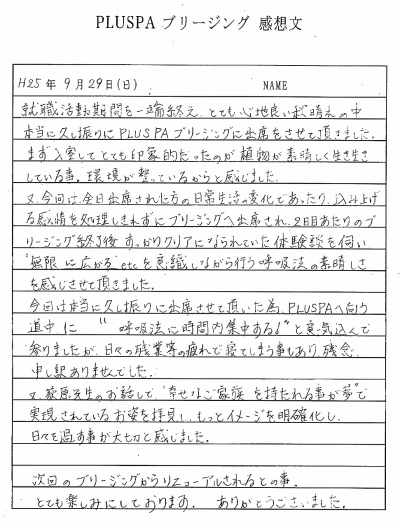 PLUSPA ブリージング 感想文
H25 年 9 月 29 日 (日) NAME
就職活動期間を一端終え、とても心地良い秋晴れの中
本当に久し振りに PLUSPA ブリージングに出席をさせて頂きました。
まず入室してとても印象的だったのが植物が素晴しく生き生き
している事。環境が整っているからと感じました。
又、今回は、全日出席された方の日常生活の変化であったり、込み上げ
る感情を処理しきれずにブリージングへ出席され、2日目あたりのブ
リージング終了後 すっかりクリアになられていた体験談を伺い
"無限に広がる" etc を意識しながら行う呼吸法の素晴しさ
を感じさせて頂きました。
今回は本当に久し振りに出席させて頂いた為、PLUSPAへ向う
道中に "呼吸法に時間内集中する!" と意気込んで
参りましたが、日々の残業等の疲れで寝てしまう事もあり、残念、
申し訳ありませんでした。
又、萩原先生のお話しで "幸せなご家族を持たれる事が夢" で
実現されているお姿を拝見し、もっとイメージを明確化し、
日々を過す事が大切と感じました。
次回のブリージングからリニューアルされるとの事。
とても楽しみにしております。 ありがとうございました。